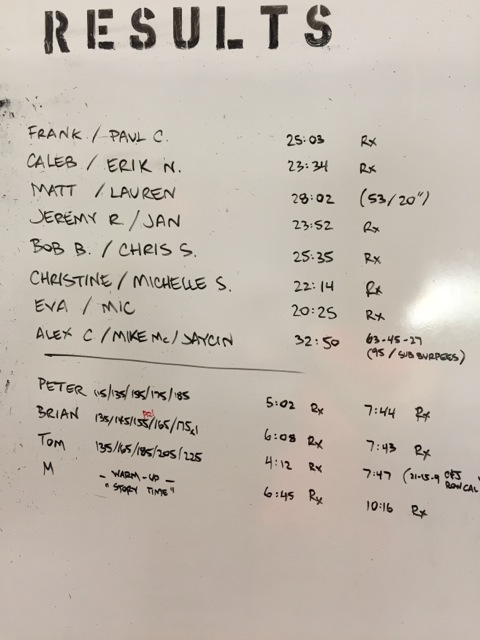 RESULTS
FRANK / PAUL C. 25:03 Rx
CALEB / ERIK N. 23:34 Rx
MATT / LAUREN 28:02 (53/20")
JEREMY R / JAN 23:52 Rx
BOB B. / CHRIS S. 25:35 Rx
CHRISTINE / MICHELLE S. 22:14 Rx
EVA / MIC 20:25 Rx
ALEX C / MIKE Mc / JAYCIN 32:50 63-45-27
(95 / SUB BURPEES)
PETER 115/135/155/175/185 5:02 Rx 7:44 Rx
BRIAN 135/145/155/165/175x1 6:08 Rx 7:43 Rx
TOM 135/165/185/205/225 4:12 Rx 7:47 (21-15-9
ROW CAL
M - WARM-UP - 6:45 Rx 10:16 Rx
"STORY TIME"